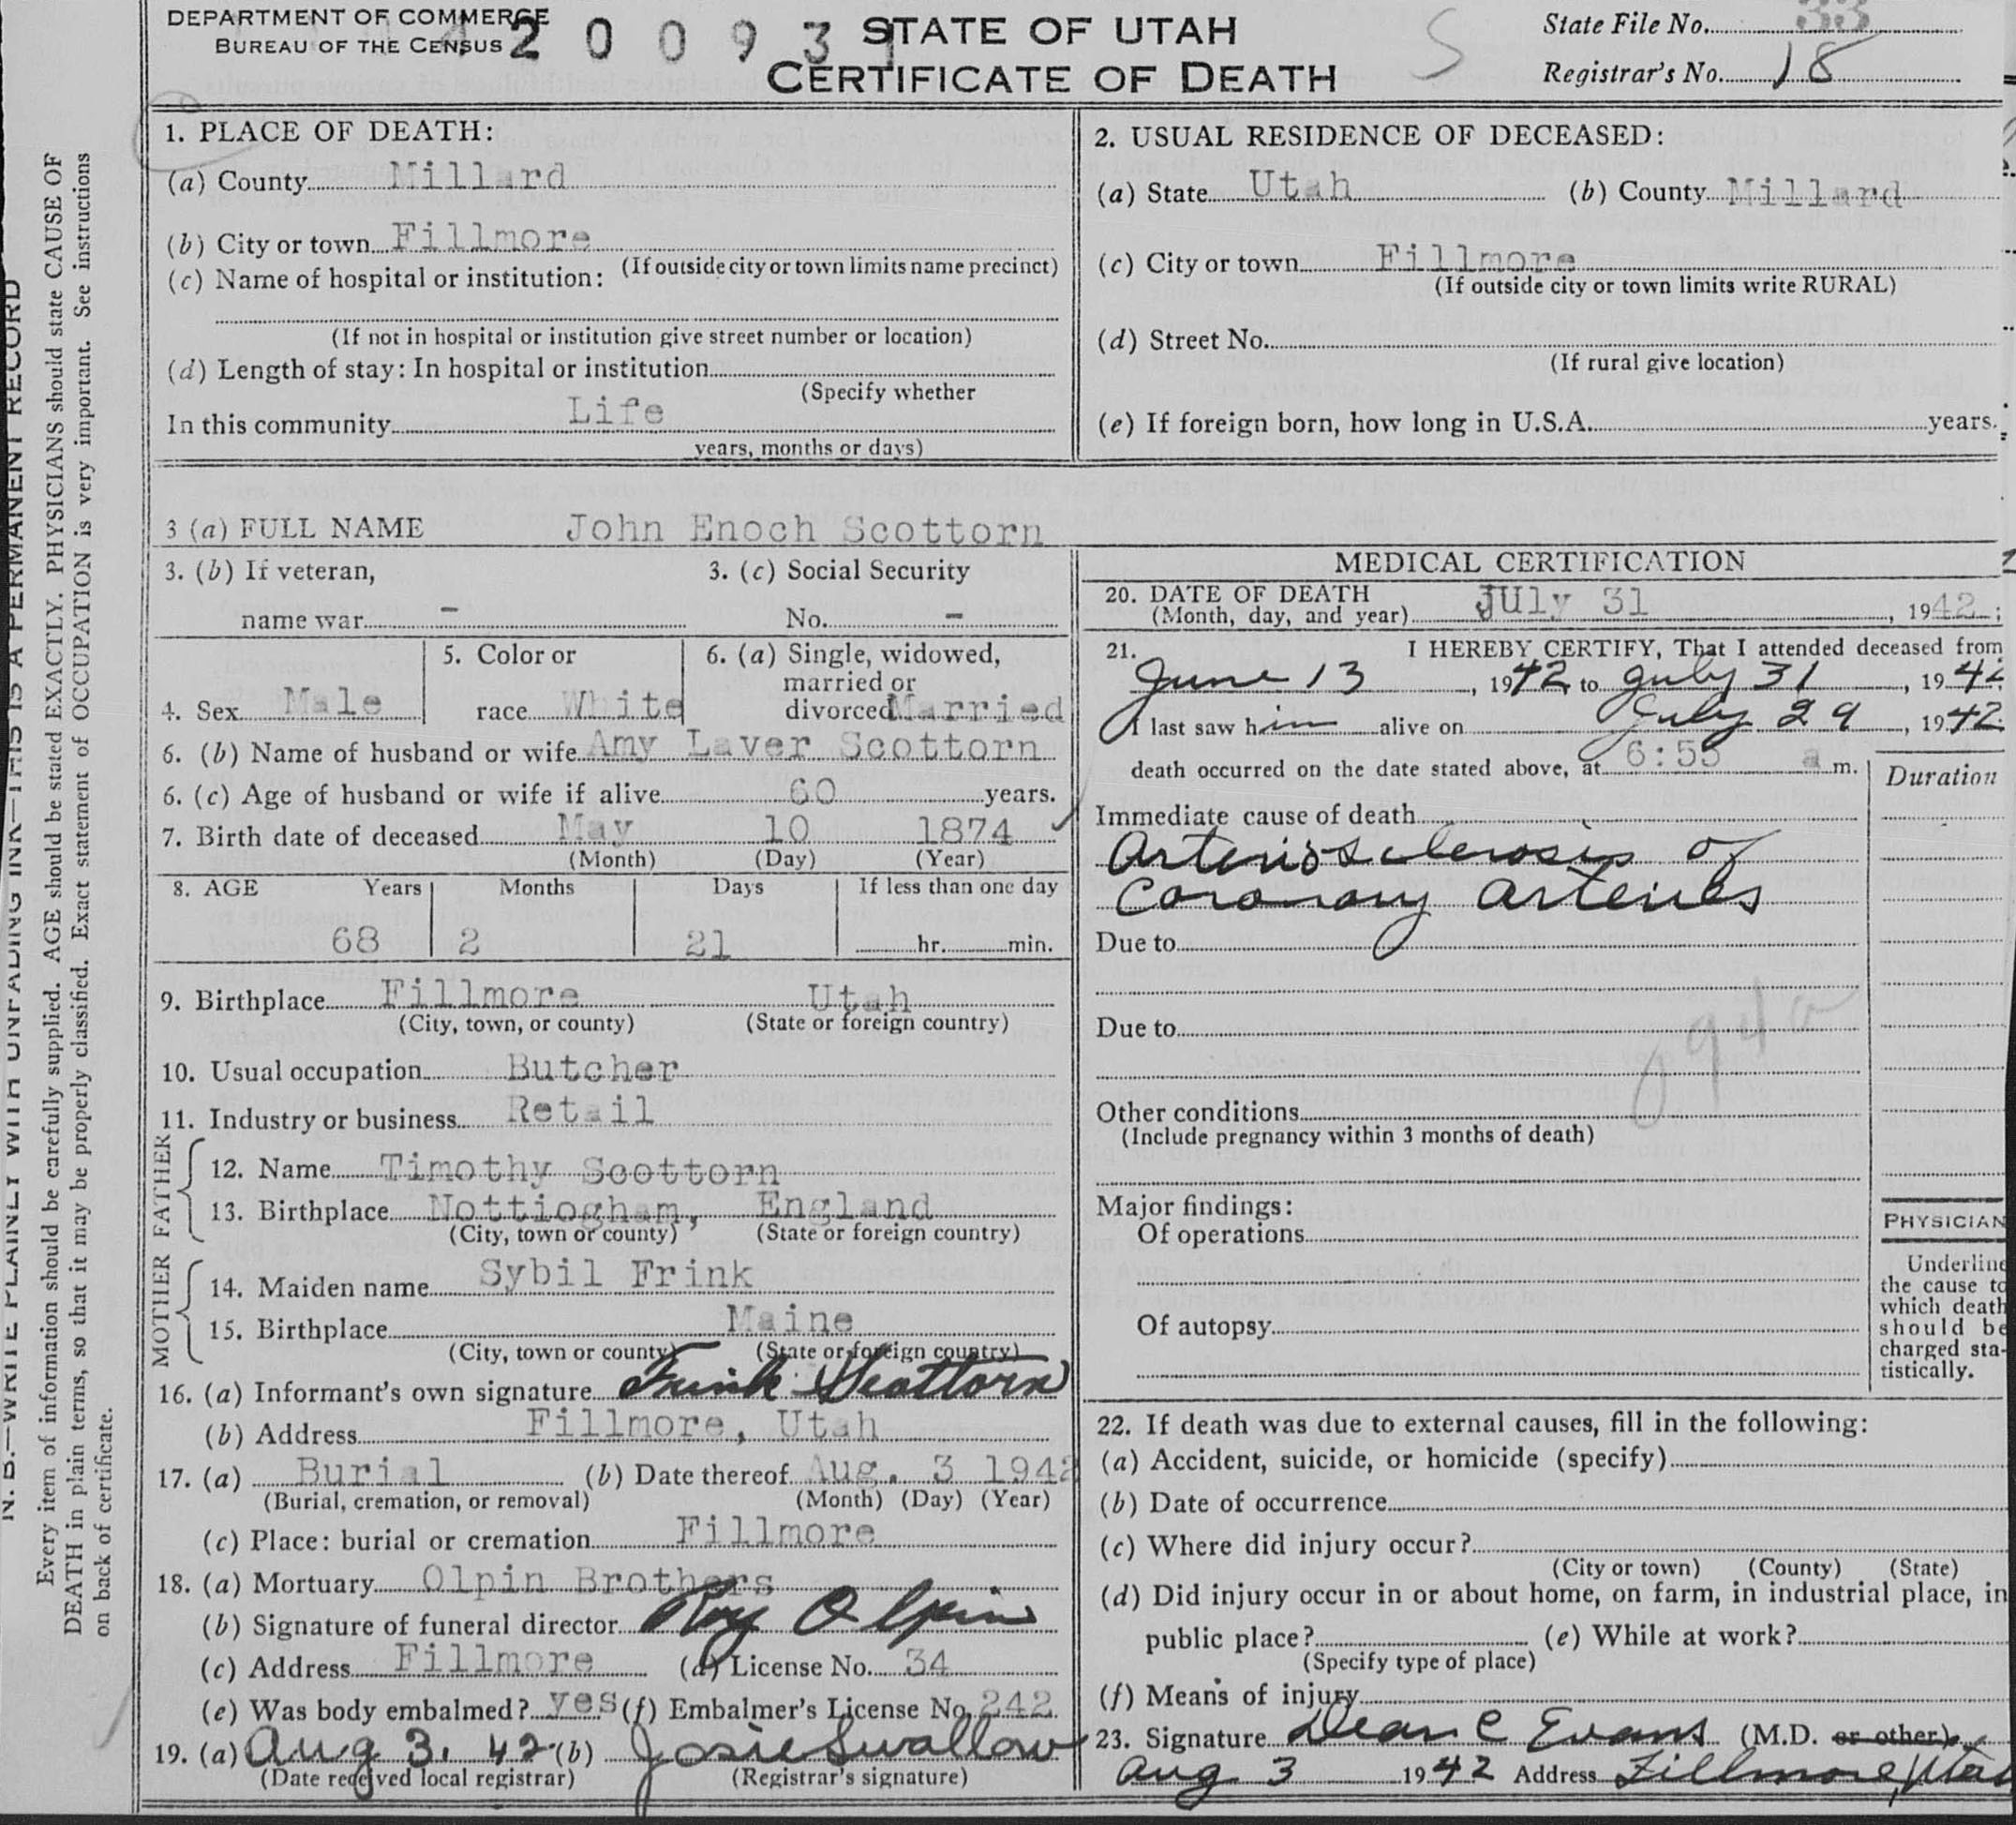 DEPARTMENT OF COMMERCE
BUREAU OF THE CENSUS
2 0 0 9 3
STATE OF UTAH
CERTIFICATE OF DEATH
S
State File No. 33
Registrar's No. 18
1. PLACE OF DEATH:
(a) County Millard
(b) City or town Fillmore
(If outside city or town limits name precinct)
(c) Name of hospital or institution:
(If not in hospital or institution give street number or location)
(d) Length of stay: In hospital or institution
(Specify whether
In this community Life
years, months or days)
2. USUAL RESIDENCE OF DECEASED:
(a) State Utah (b) County Millard
(c) City or town Fillmore
(If outside city or town limits write RURAL)
(d) Street No.
(If rural give location)
(e) If foreign born, how long in U.S.A. years.
3 (a) FULL NAME John Enoch Scottorn
3. (b) If veteran,
name war -
3. (c) Social Security
No. -
4. Sex Male
5. Color or
race White
6. (a) Single, widowed,
married or
divorced Married
6. (b) Name of husband or wife Amy Laver Scottorn
6. (c) Age of husband or wife if alive 60 years.
7. Birth date of deceased May 10 1874
(Month) (Day) (Year)
8. AGE Years Months Days If less than one day
68 2 21 hr. min.
9. Birthplace Fillmore Utah
(City, town, or county) (State or foreign country)
10. Usual occupation Butcher
11. Industry or business Retail
FATHER
12. Name Timothy Scottorn
13. Birthplace Nottiogham, England
(City, town or county) (State or foreign country)
MOTHER
14. Maiden name Sybil Frink
15. Birthplace Maine
(City, town or county) (State or foreign country)
16. (a) Informant's own signature Frink Scottorn
(b) Address Fillmore, Utah
17. (a) Burial (b) Date thereof Aug. 3 1942
(Burial, cremation, or removal) (Month) (Day) (Year)
(c) Place: burial or cremation Fillmore
18. (a) Mortuary Olpin Brothers
(b) Signature of funeral director Roy Olpin
(c) Address Fillmore (d) License No. 34
(e) Was body embalmed? yes (f) Embalmer's License No. 242
19. (a) Aug 3. 42 (b) Josie Swallow
(Date received local registrar) (Registrar's signature)
MEDICAL CERTIFICATION
20. DATE OF DEATH
(Month, day, and year) July 31, 1942;
21. I HEREBY CERTIFY, That I attended deceased from
June 13, 1942 to July 31, 1942
I last saw him alive on July 29, 1942
death occurred on the date stated above, at 6:55 a m.
Duration
Immediate cause of death
Arteriosclerosis of
Coronary arteries
Due to
Due to
94a
Other conditions
(Include pregnancy within 3 months of death)
Major findings:
Of operations
Of autopsy
PHYSICIAN
Underline
the cause to
which death
should be
charged sta-
tistically.
22. If death was due to external causes, fill in the following:
(a) Accident, suicide, or homicide (specify)
(b) Date of occurrence
(c) Where did injury occur?
(City or town) (County) (State)
(d) Did injury occur in or about home, on farm, in industrial place, in
public place? (e) While at work?
(Specify type of place)
(f) Means of injury
23. Signature Dean C Evans (M.D. or other)
Aug 3 1942 Address Fillmore, Utah
N. B.—WRITE PLAINLY WITH UNFADING INK—THIS IS A PERMANENT RECORD
Every item of information should be carefully supplied. AGE should be stated EXACTLY. PHYSICIANS should state CAUSE OF
DEATH in plain terms, so that it may be properly classified. Exact statement of OCCUPATION is very important. See instructions
on back of certificate.